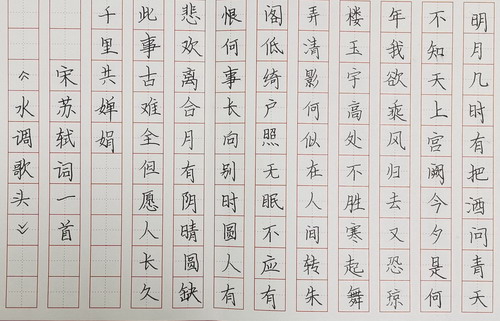 明月几时有把酒问青天
不知天上宫阙今夕是何
年我欲乘风归去又恐琼
楼玉宇高处不胜寒起舞
弄清影何似在人间转朱
阁低绮户照无眠不应有
恨何事长向别时圆人有
悲欢离合月有阴晴圆缺
此事古难全但愿人长久
千里共婵娟
宋苏轼词一首
《水调歌头》